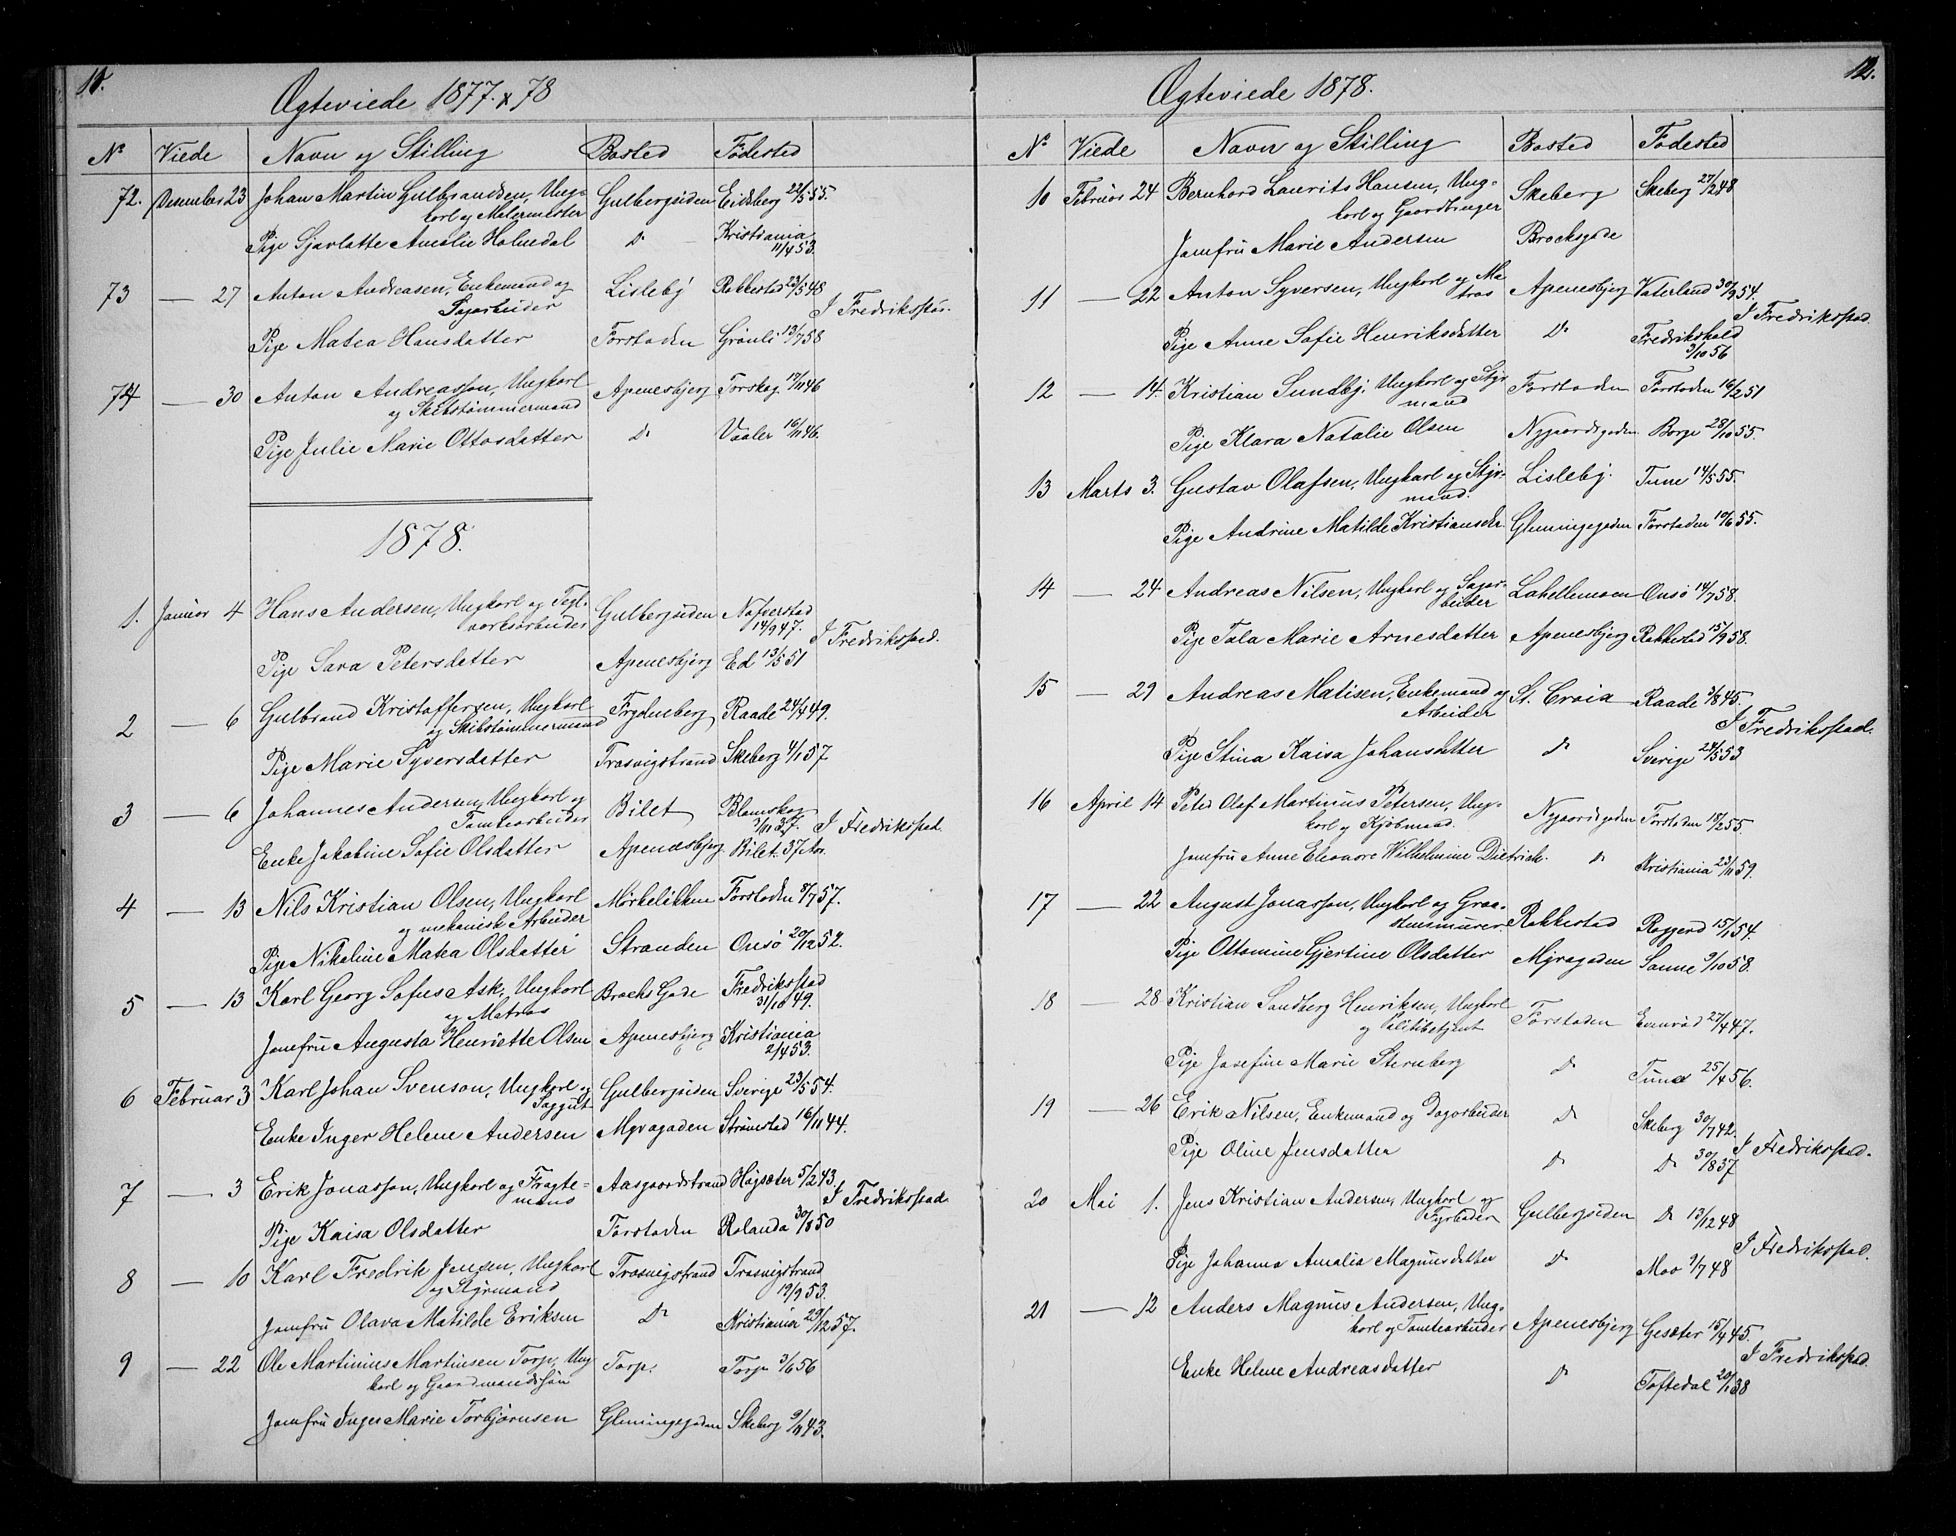 11.
Ægteviede 1877. & 78
No Viede Navn og Stilling Bosted Fødested
72. Desember 23 Johan Martin Gulbrandsen, Ung- Gulbergsiden Eidsberg 22/5 55.
karl og Malermester
Pige Sjarlatte Amalie Holmedal Do Kristiania
11/4 53.
73 — 27 Anton Andreasen, Enkemand og Lisleby Rakkestad 23/5 48
Sagarbeider I Fredriksstad.
Pige Matea Hansdatter Forstaden Grønli 13/7 58
74 — 30 Anton Andreasson, Ungkarl Apenesbjerg Torskog 17/11 46
og Skibstømmermand
Pige Julie Marie Ottosdatter Do Vaaler 16/11 46.
1878.
1. Januar 4 Hans Andersen, Ungkarl og Tegl- Gulbergsiden Nafverstad
værksarbeider 14/9 47. I Fredriksstad.
Pige Sara Petersdatter Apenesbjerg Ed 13/5 51
2 — 6 Gulbrand Kristoffersen, Ungkarl Frydenberg Raade 24/4 49.
og Skibstømmermand
Pige Marie Syversdatter Trosvigstrand Skeberg 4/1 57
3 — 6 Johannes Andersen, Ungkarl og Bilet Blomskog
Tomtearbeider 3/11 37. I Fredriksstad.
Enke Jakobine Sofie Olsdatter Apenesbjerg Bilet. 37 Aar.
4 — 13 Nils Kristian Olsen, Ungkarl Mørkeløkken Forstaden 8/7 57.
og mekanisk Arbeider
Pige Nikoline Matea Olsdatter Stranden Onsø 20/12 52.
5 — 13 Karl Georg Sofus Ask, Ungkarl Brochs Gade Fredriksstad
og Matros 31/10 49.
Jomfru Augusta Henriette Olsen Apenesbjerg Kristiania
2/4 53.
6 Februar 3 Karl Johan Svenson, Ungkarl og Gulbergsiden Sverige 23/5 54.
Saggut
Enke Inger Helene Andersen Myragaden Strømstad 16/11 44.
7 — 3 Erik Jonasson, Ungkarl og Fragte- Aasgaardstrand Högsæter 5/2 43.
mand I Fredriksstad
Pige Kaisa Olsdatter Forstaden Rolanda 30/8 50
8 — 10 Karl Fredrik Jensen, Ungkarl Trosvigstrand Trosvigstrand
og Styrmand 19/9 53.
Jomfru Olava Matilde Eriksen Do Kristiania 29/12 57.
9 — 22 Ole Martinius Martinsen Torp, Ung Torp. Torp 3/6 56
karl og Gaardmandssøn
Jomfru Inger Marie Torbjørnsen Glemingegaden Skeberg 9/11 43.
12.
Ægteviede 1878.
No Viede Navn og Stilling Bosted Fødested
10 Februar 24 Bernhard Laurits Hansen, Ung- Skeberg Skeberg 27/2 48
karl og Gaardbruger
Jomfru Marie Andersen Brochsgade
11 — 22 Anton Syversen, Ungkarl og Ma- Apenesbjerg Vaterland 30/9 54.
tros I Fredriksstad.
Pige Anne Sofie Henriksdatter Do Fredrikshald
3/10 56
12 — 14. Kristian Sundby, Ungkarl og Styr Forstaden Forstaden 16/2 51
mand
Pige Klara Natalie Olsen Nygaardsgaden Borge 28/10 55.
13 Marts 3. Gustav Olafsen, Ungkarl og Styr- Lisleby. Tune 14/5 55.
mand.
Pige Andrine Matilde Kristiansdtr. Glemingegaden Forstaden 10/6 55.
14 — 24 Andreas Nilsen, Ungkarl og Sagar- Lahellemoen Onsø 14/7 58.
beider
Pige Tala Marie Arnesdatter Apenesbjerg Rakkestad 15/9 58.
15 — 29 Andreas Matisen, Enkemand og St. Croix Raade 3/8 45.
Arbeider I Fredriksstad.
Pige Stina Kaisa Johansdatter Do Sverige 28/5 53
16 April 14 Peter Olaf Martinus Petersen, Ung- Nygaardsgaden Forstaden 18/2 55.
karl og Kjøbmand.
Jomfru Anne Eleonore Wilhelmine Dietrich. Do Kristiania 23/11 59.
17 — 22 August Jonasson, Ungkarl og Graa-
stensmurer Rakkestad Roggerd 15/1 54.
Pige Ottomine Gjertine Olsdatter Myragaden Sanne 9/10 58.
18 — 28 Kristian Sandberg Henriksen, Ungkarl Forstaden 27/4 47.
og Politibetjent
Pige Josefine Marie Sternberg Do Tune 25/4 56.
19 — 26 Erik Nilsen, Enkemand og Dagarbeider Do Skeberg 30/7 42.
I Fredriksstad.
Pige Oline Jensdatter Do Do 30/8 37
20 Mai 1. Jens Kristian Andersen, Ungkarl og Gulbergsiden Do 13/12 48
Fyrbøder I Fredriksstad.
Pige Johanna Amalia Magnusdatter Do Moo 9/7 48
21 — 12 Anders Magnus Andersen, Ung- Apenesbjerg Gesæter 15/4 45.
karl og Tomtearbeider I Fredriksstad.
Enke Helene Andreasdatter Do Töftedal 20/1 38